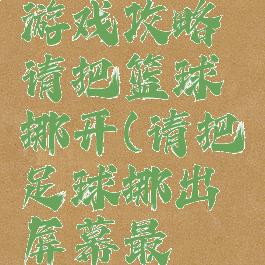 游戏攻略
请把篮球
挪开(请把
足球挪出
屏幕最